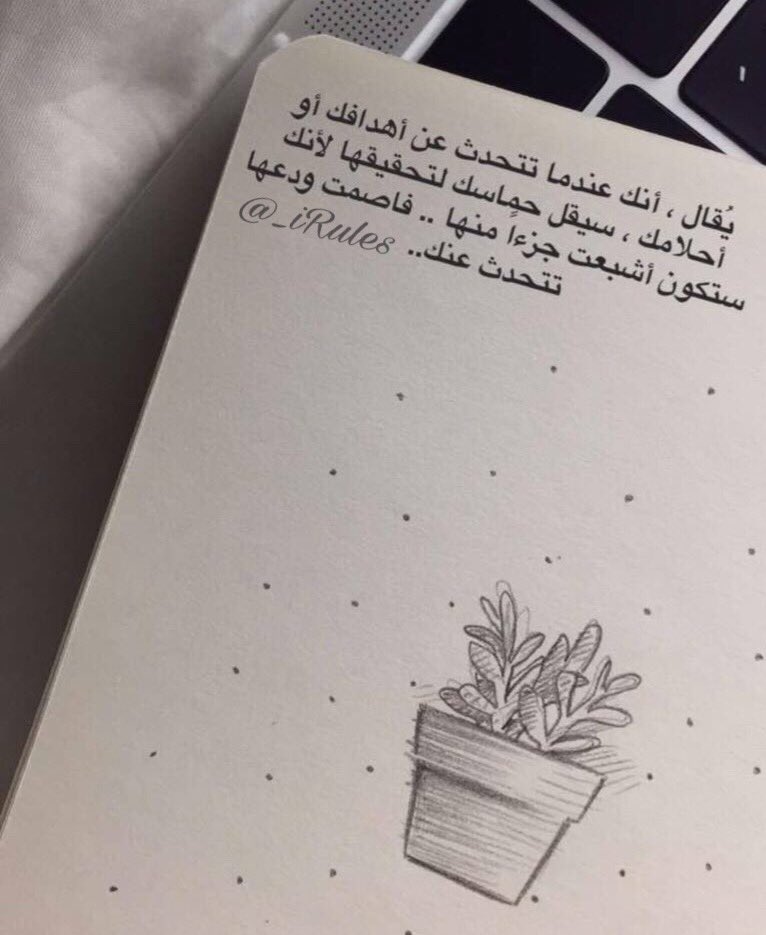 يُقال ، أنك عندما تتحدث عن أهدافك أو
أحلامك ، سيقل حماسك لتحقيقها لأنك
ستكون أشبعت جزءاً منها .. فاصمت ودعها
تتحدث عنك..
@_iRules